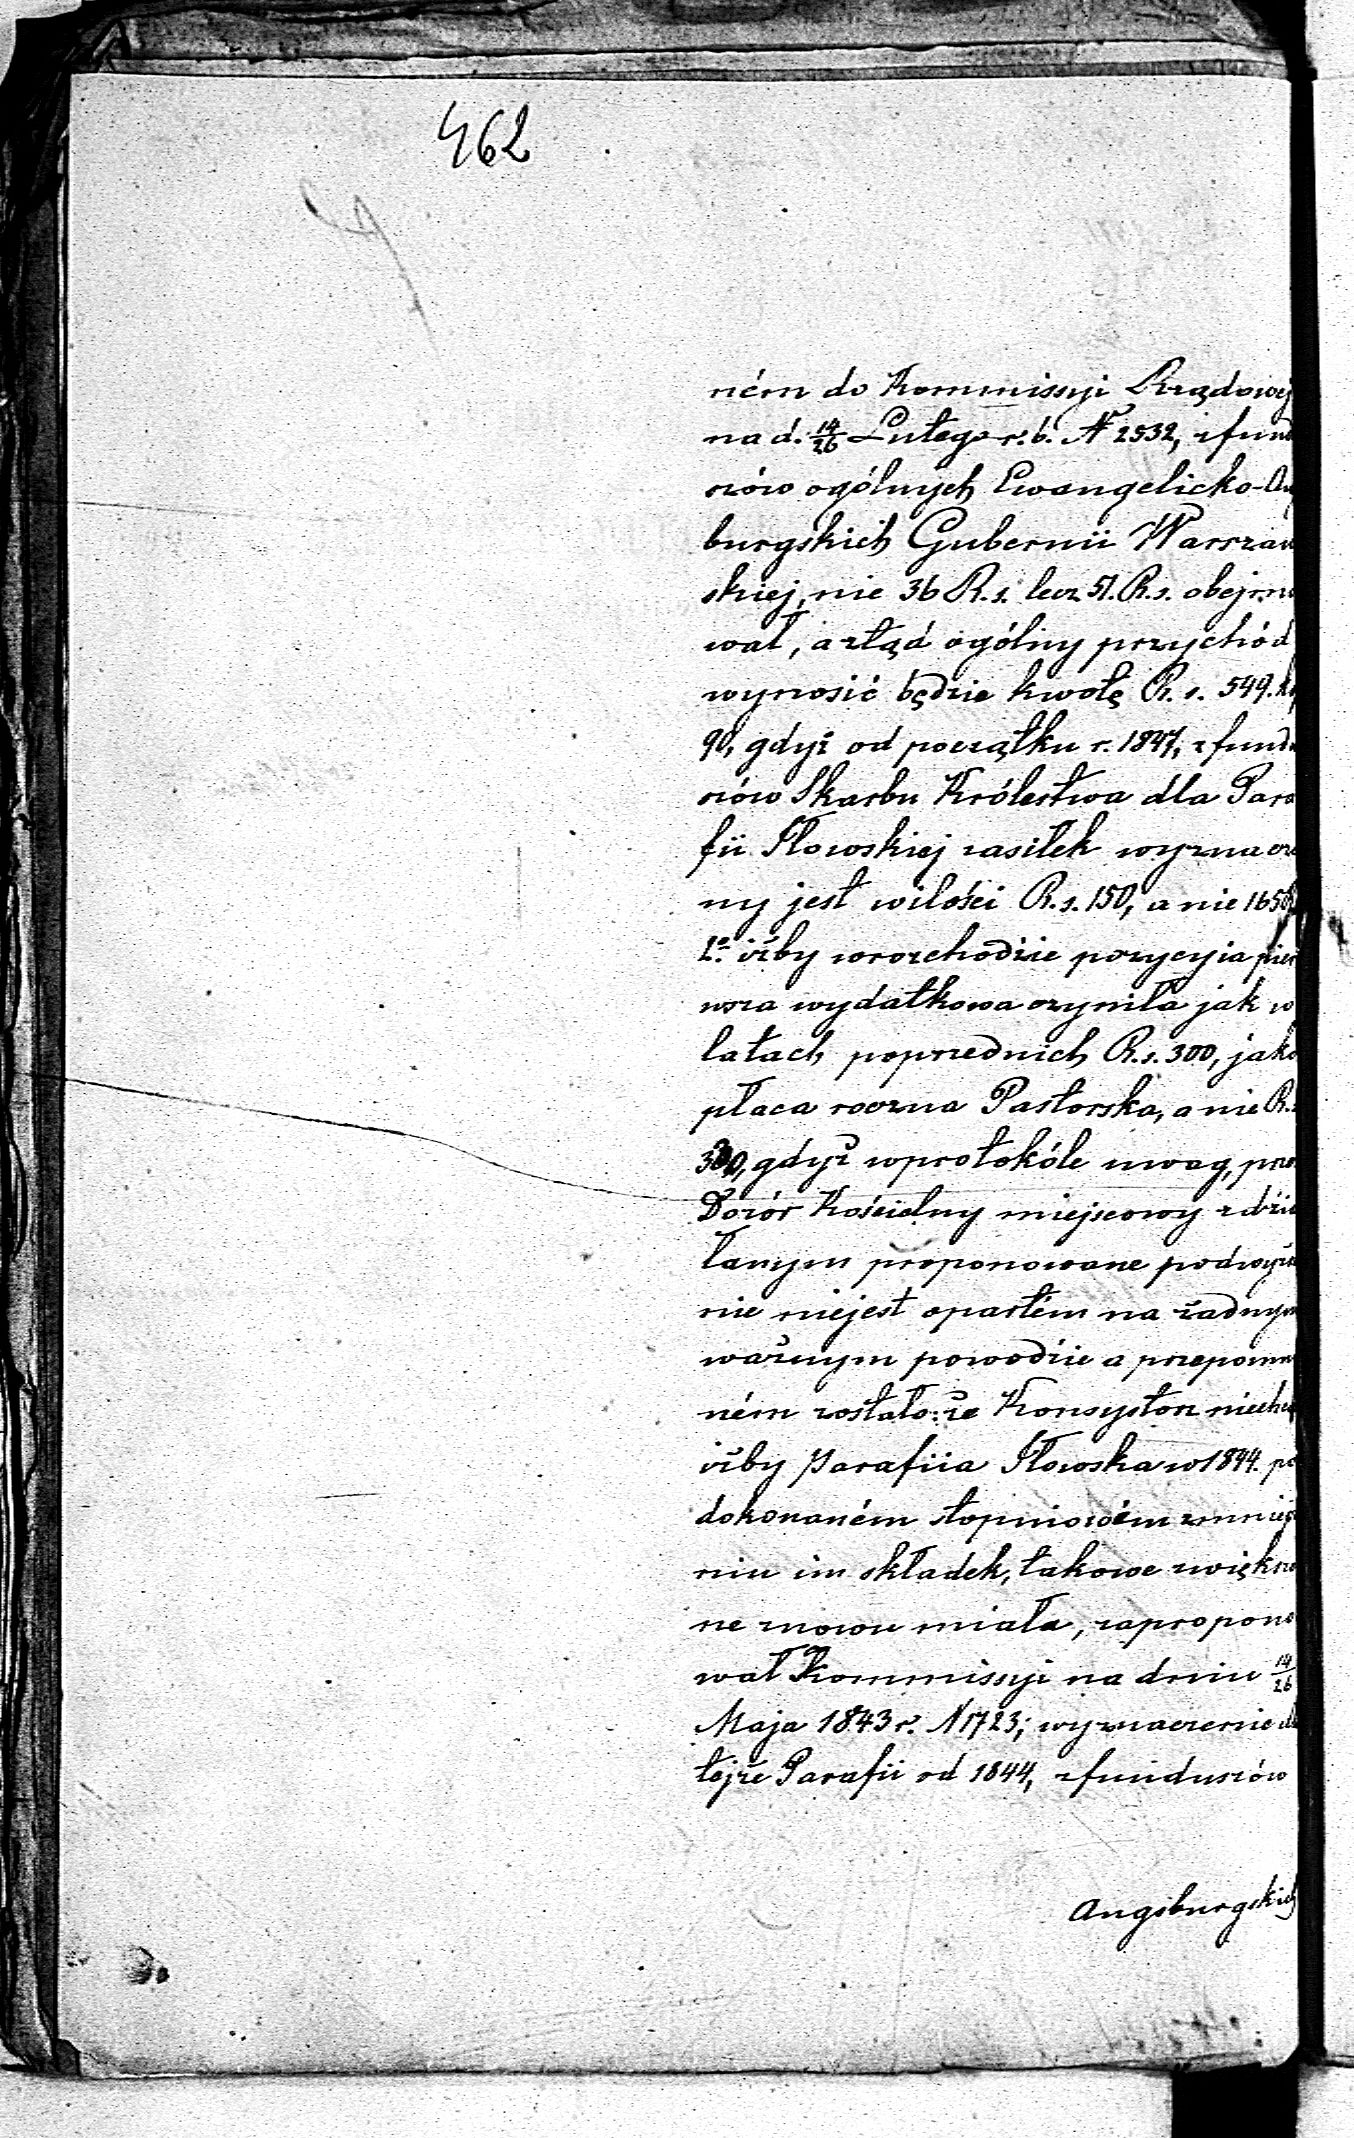 462
ném do Kommissyi Rządowej
na d. 14/26 Lutego r. b. N 2532, z fund
szów ogólnych Ewangelicko-Aug
burgskich Gubernii Warszaw
skiej, nie 36 R.s. lecz 51. R.s. obejmo
wał, a ztąd ogólny przychód
wynosić będzie kwotę R. s. 549. k
90, gdyż od początku r. 1847, z fundu
szów Skarbu Królestwa dla Para
fii Iłowskiej zasiłek wyznaczo
ny jest wilości R.s. 150, a nie 165
2º iżby wrozchodzie pozycyia pier
wsza wydatkowa czyniła jak w
latach poprzednich R.s. 300, jako
płaca roczna Pastorska, a nie R.
gdyż wprotokóle uwag, przez
Dozór Kościelny miejscowy zdzia
łanym proponowane podwyższe
nie niejest opartém na żadnym
ważnym powodzie a przepomnia
ném zostało: że Konsystorz niechcąc
iżby Parafiia Iłowska w 1844. po
dokonaném stopniowém zmniejsze
niu im składek, takowe zwiększo
ne znowu miała, zapropono
wał Kommissyi na dniu 14/26
Maja 1843 r. N 1723; wyznaczenie dla
tejże Parafii od 1844, zfunduszów
Augsburgskich